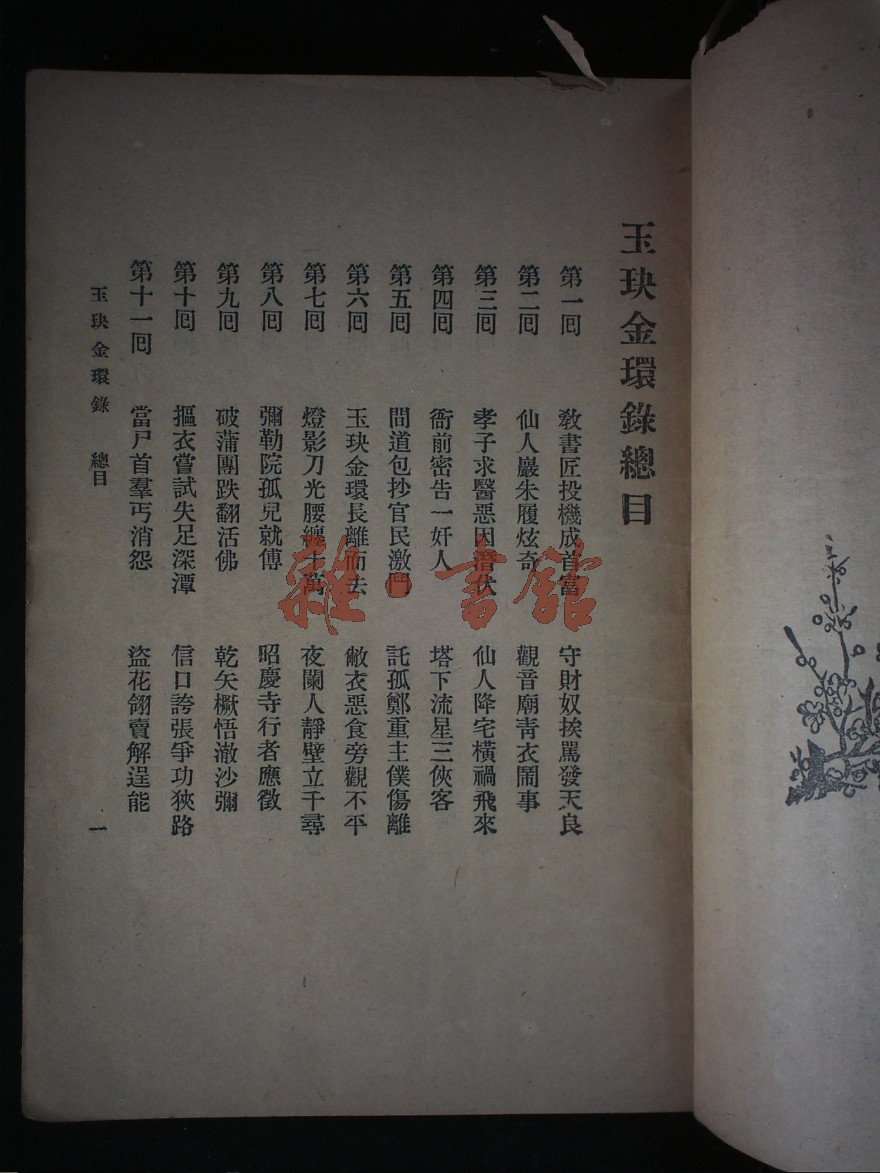 玉玦金環錄總目
第一囘 敎書匠投機成首富 守財奴挨罵發天良
第二囘 仙人巖朱履炫奇 觀音廟靑衣鬧事
第三囘 孝子求醫惡因潛伏 仙人降宅橫禍飛來
第四囘 衙前密告一奸人 塔下流星三俠客
第五囘 間道包抄官民激鬥 託孤鄭重主僕傷離
第六囘 玉玦金環長離而去 敝衣惡食旁觀不平
第七囘 燈影刀光腰纏十萬 夜闌人靜壁立千尋
第八囘 彌勒院孤兒就傅 昭慶寺行者應徵
第九囘 破蒲團跌翻活佛 乾矢橛悟澈沙彌
第十囘 摳衣嘗試失足深潭 信口誇張爭功狹路
第十一囘 當尸首羣丐消怨 盜花翎賣解逞能
玉玦金環錄 總目 一
雜·書館